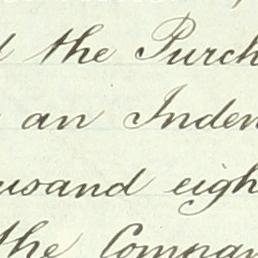 the Purch
an Inden
usand eigh
the Compan